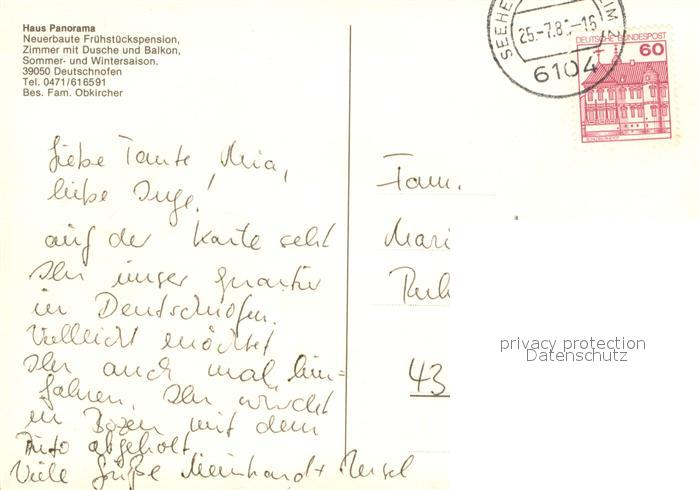 Haus Panorama
Neuerbaute Frühstückspension,
Zimmer mit Dusche und Balkon,
Sommer- und Wintersaison.
39050 Deutschnofen
Tel. 0471/616591
Bes. Fam. Obkircher
SEEHE
25.-7.8 -16
6104
DEUTSCHE BUNDESPOST
60
Liebe Tante Mia,
liebe Inge!
auf der Karte seht
Ihr unser Quartier
in Deutschnofen.
Vielleicht möchtet
Ihr auch mal hin=
fahren. Ihr würdet
in Bozen mit dem
Auto abgeholt.
Viele Grüße Meinhard +
Fam.
Mari
Ruh
43
privacy protection
Datenschutz